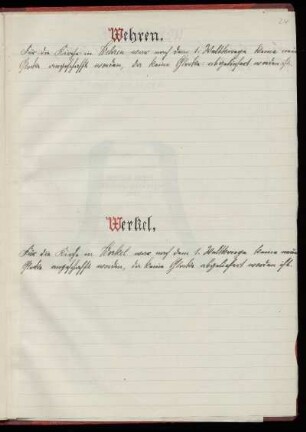 Wehren.
Für die Kirche in Wehren war nach dem 1. Weltkriege keine neue
Glocke angeschafft worden, da keine Glocke abgeliefert worden ist.
Werkel.
Für die Kirche in Werkel war nach dem 1. Weltkriege keine neue
Glocke angeschafft worden, da keine Glocke abgeliefert worden ist.